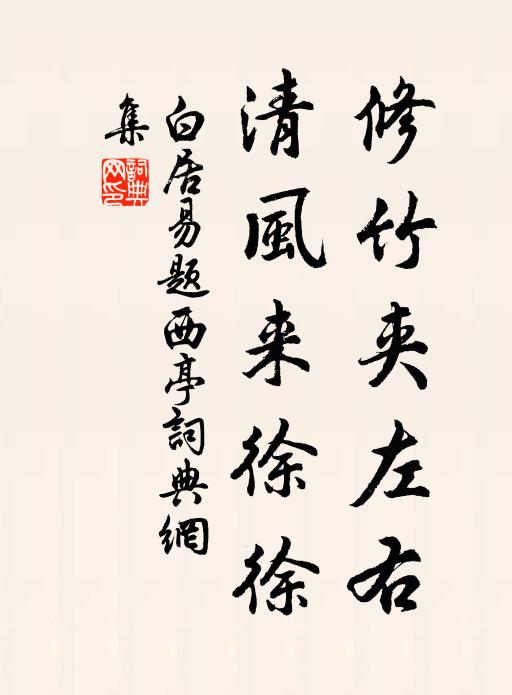 修竹夾左右
清風来徐徐
白居易题西亭詞典網
集
詞典
网印